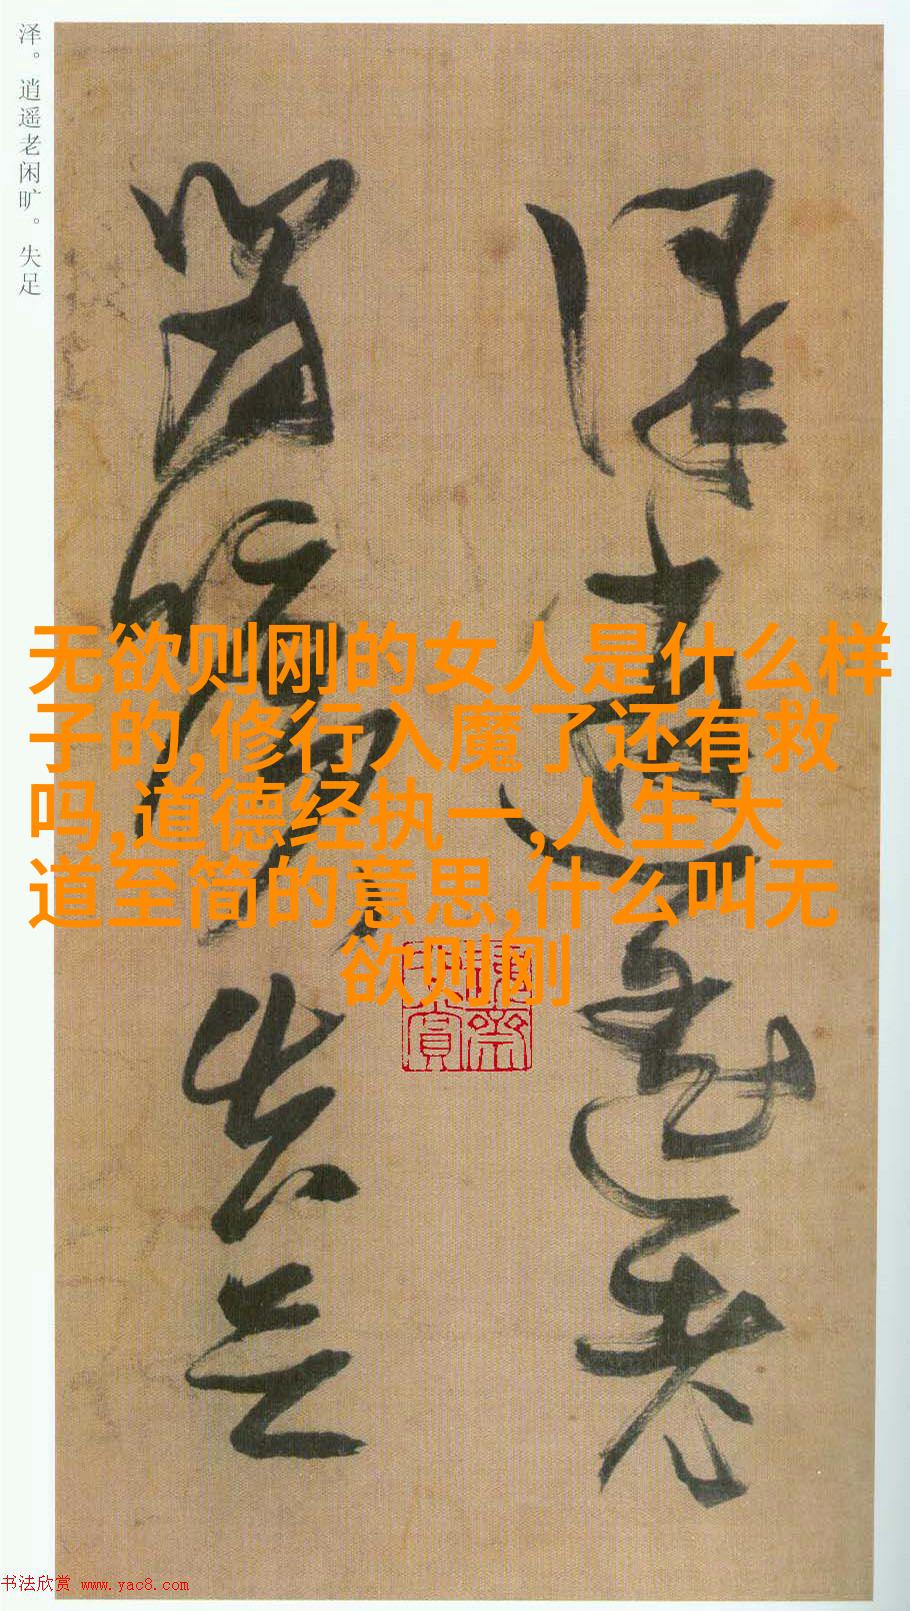 泽。逍遥老闲旷。失足
泽逍遥老
闲旷失足
无欲则刚的女人是什么样
子的,修行入魔了还有救
吗,道德经执一,人生大
道至简的意思,什么叫无
欲则刚
书法欣赏 www.yac8.com